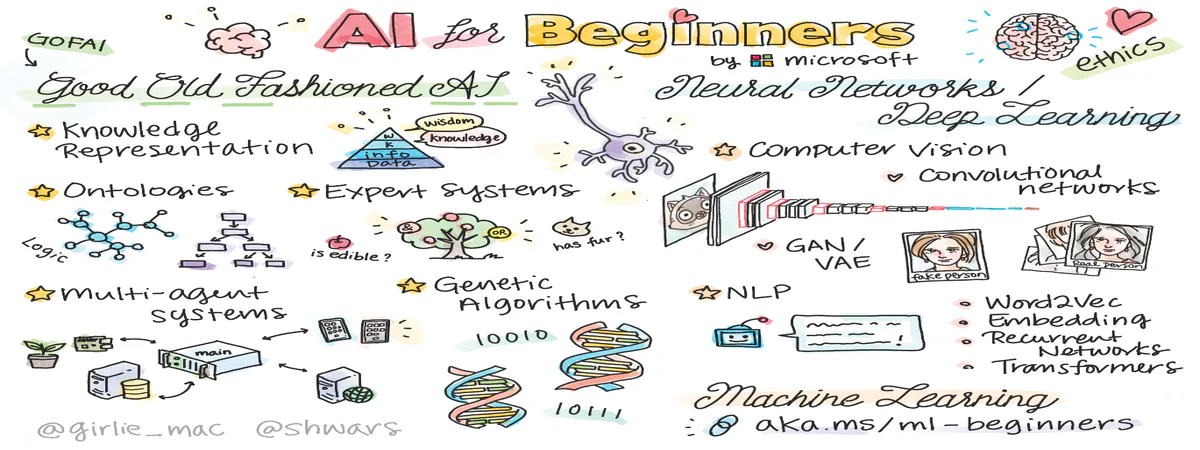 AI for Beginners
by microsoft
GOFAI
ethics
Good Old Fashioned AI
Knowledge
Representation
wisdom
knowledge
W
K
info
Data
Ontologies
Logic
Expert Systems
is edible?
&
OR
has fur?
Multi-agent
systems
main
Genetic
Algorithms
10010
10111
@girlie_mac @shwars
Neural Networks /
Deep Learning
Computer Vision
Convolutional
networks
GAN/
VAE
fake person
Real person
NLP
Word2Vec
Embedding
Recurrent
Networks
Transformers
Machine Learning
aka.ms/ml-beginners